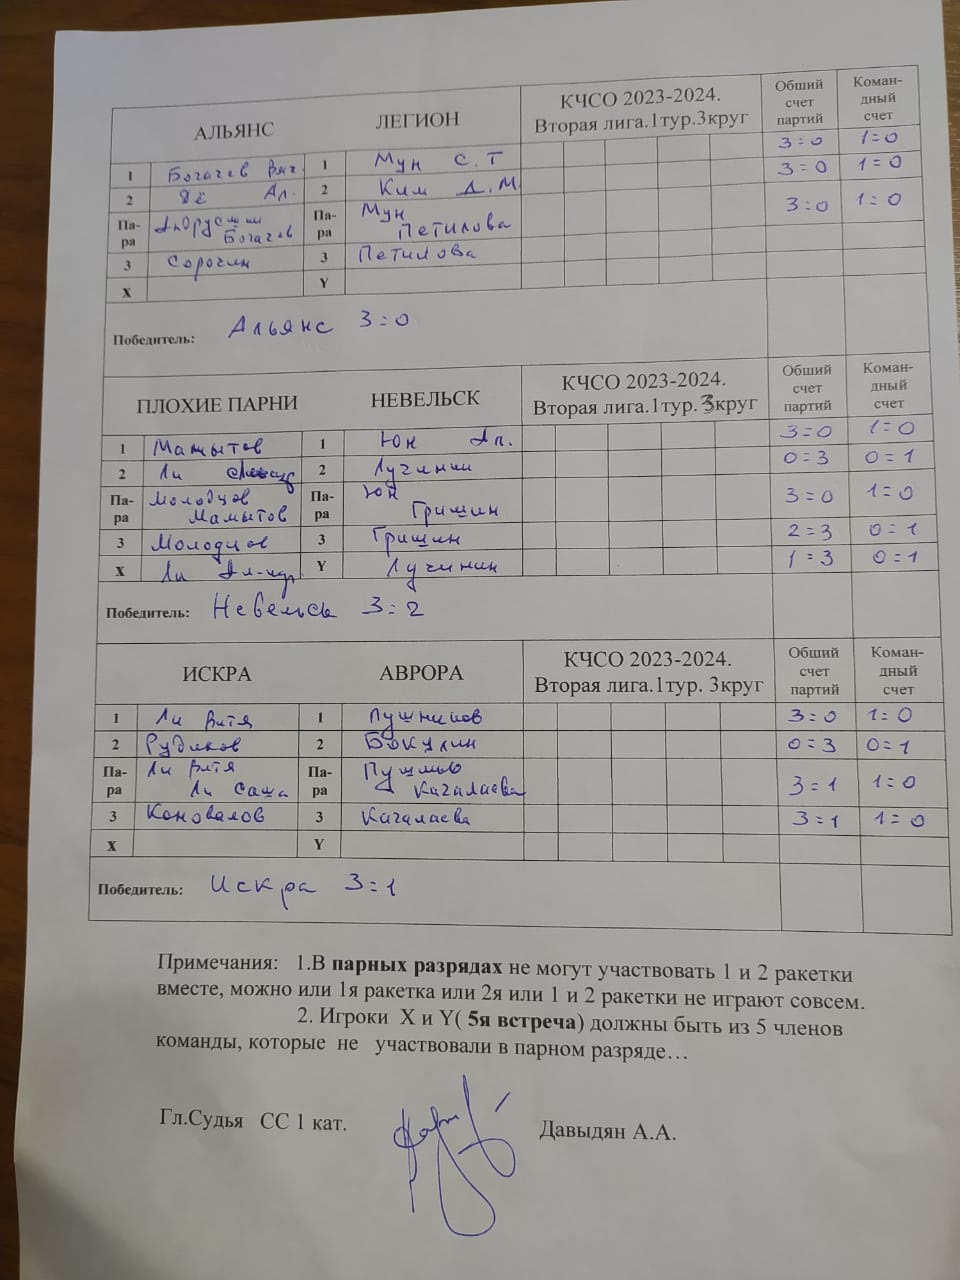 АЛЬЯНС ЛЕГИОН КЧСО 2023-2024. Вторая лига.1тур.3круг Обший счет партий Коман-дный счет
1 Богачев Вяч. 1 Мун С.Т 3=0 1=0
2 Ян Ал. 2 Ким А.М 3=0 1=0
Па-ра Богачев Па-ра Мун Петилова 3=0 1=0
3 Сорочин 3 Петилова
X Y
Победитель: Альянс 3=0
ПЛОХИЕ ПАРНИ НЕВЕЛЬСК КЧСО 2023-2024. Вторая лига.1тур.3круг Обший счет партий Коман-дный счет
1 Мамытов 1 Юн Ал. 3=0 1=0
2 Ли 2 Лучинин 0=3 0=1
Па-ра Молодцов Мамытов Па-ра Юн Гришин 3=0 1=0
3 Молодцов 3 Гришин 2=3 0=1
X Ли Ал-др Y Лучинин 1=3 0=1
Победитель: Невельск 3=2
ИСКРА АВРОРА КЧСО 2023-2024. Вторая лига.1тур. 3круг Обший счет партий Коман-дный счет
1 Ли Витя 1 Пушников 3=0 1=0
2 Рудиков 2 Бокулин 0=3 0=1
Па-ра Ли Витя Ли Саша Па-ра Качалаева 3=1 1=0
3 Коновалов 3 Качалаева 3=1 1=0
X Y
Победитель: Искра 3=1
Примечания: 1.В парных разрядах не могут участвовать 1 и 2 ракетки
вместе, можно или 1я ракетка или 2я или 1 и 2 ракетки не играют совсем.
2. Игроки X и Y( 5я встреча) должны быть из 5 членов
команды, которые не участвовали в парном разряде…
Гл.Судья СС 1 кат. Давыдян А.А.